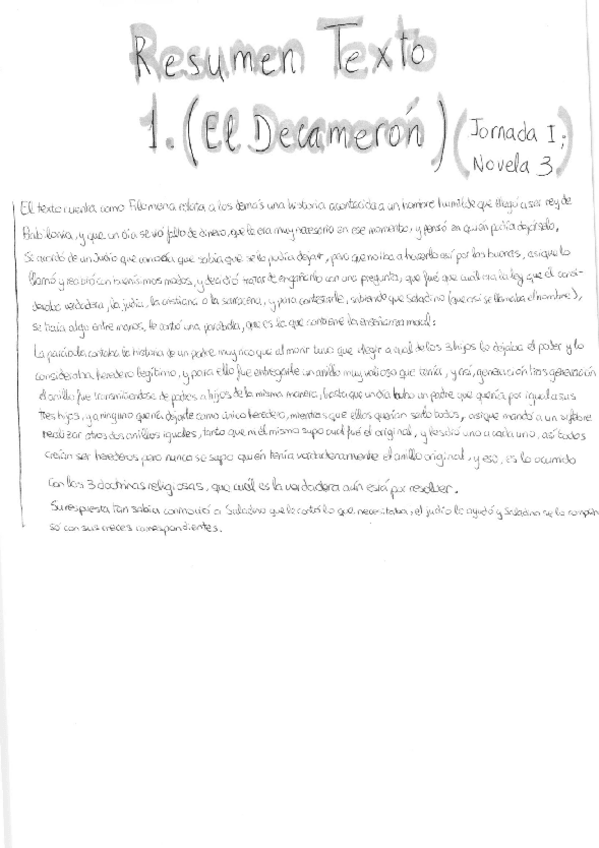 Resumen Texto
1. (El Decamerón) (Jornada I;
Novela 3)
El texto cuenta como Filomena relata a los demás una historia acontecida a un hombre humilde que llegó a ser rey de
Babilonia, y que un día se vió falto de dinero, que le era muy necesario en ese momento, y pensó en quién podía dejárselo,
Se acordó de un Judío que conocía que sabía que se lo podía dejar, pero que no iba a hacerlo así por las buenas, asique lo
llamó y recibió con buenísimos modos, y decidió tratar de engañarlo con una pregunta, que fué que cual era la ley que él consi-
deraba verdadera, la judía, la cristiana o la sarracena, y para contestarle, sabiendo que Saladino (que así se llamaba el hombre),
se traía algo entre manos, le contó una parábola, que es la que contiene la enseñanza moral:
La parábola contaba la historia de un padre muy rico que al morir tuvo que elegir a cuál de los 3 hijos le dejaba el poder y lo
consideraba heredero legítimo, y para ello fue entregarle un anillo muy valioso que tenía, y así, generación tras generación
el anillo fue transmitiendose de padres a hijos de la misma manera, hasta que un día hubo un padre que quería por igual a sus
tres hijos, y a ninguno quería dejarle como único heredero, mientras que ellos querían serlo todos, asique mandó a un orfebre
realizar otros dos anillos iguales, tanto que ni él mismo supo cual fué el original, y les dió uno a cada uno, así todos
creían ser herederos pero nunca se supo quién tenía verdaderamente el anillo original, y eso, es lo ocurrido
con las 3 doctrinas religiosas, que cuál es la verdadera aún está por resolver.
Su respuesta tan sabia conmovió a Saladino que le contó lo que necesitaba, el judío le ayudó y Saladino se lo compen-
só con sus creces correspondientes.